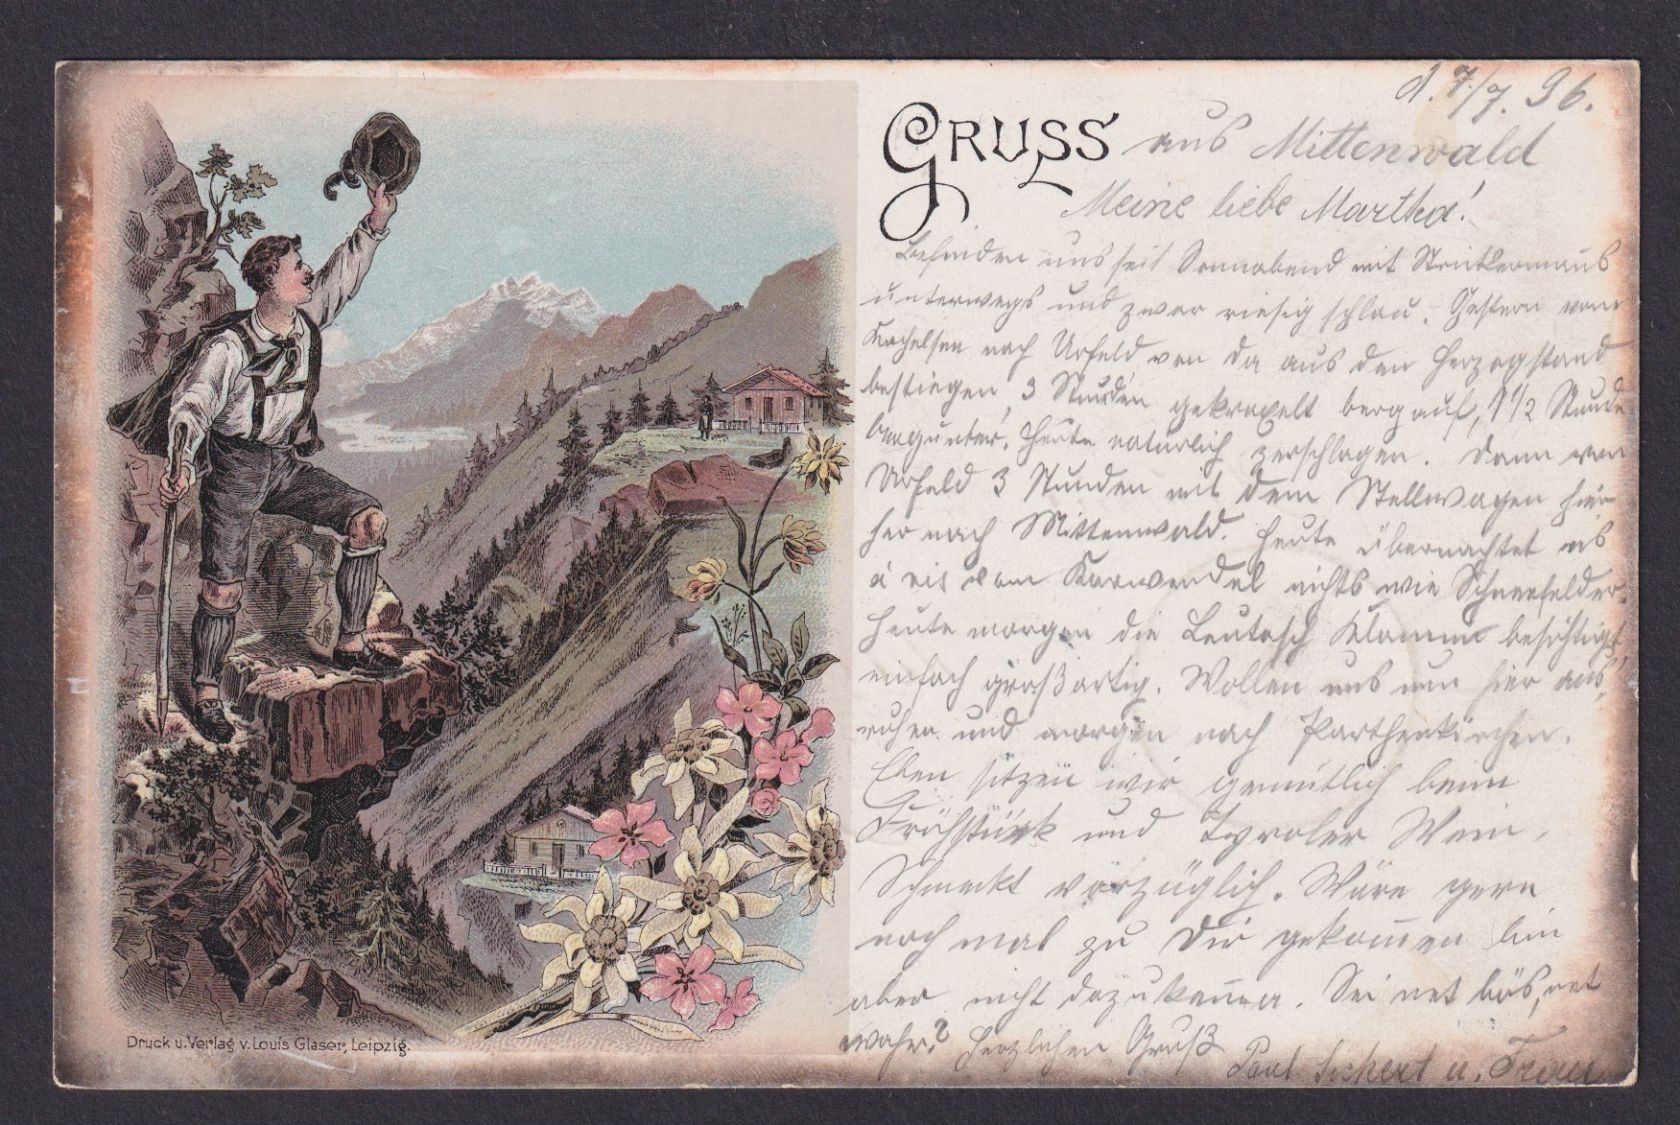 d. 7/7. 96.
GRUSS aus Mittenwald
Meine liebe Martha!
Befinden uns seit Sonnabend mit
unterwegs und zwar riesig schlau. Gestern vom
Kochelsee nach Urfeld von da aus den Herzogstand
bestiegen, 3 Stunden gekraxelt bergauf, 1 1/2 Stunde
bergunter. Heute natürlich zerschlagen. Dann von
Urfeld 3 Stunden mit dem Stellwagen hier
her nach Mittenwald. Heute übernachtet
vom Karwendel nichts wie Schneefelder.
Heute morgen die Leutasch Klamm besichtigt,
einfach großartig. Wollen uns nun hier aus
ruhen und morgen nach Parthenkirchen.
Eben sitzen wir gemütlich beim
Frühstück und Tyroler Wein.
Schmeckt vorzüglich. Wäre gern
noch mal zu Dir gekommen bin
aber nicht dazu gekommen. Sei net bös, net
wahr? Herzlichen Gruß
Paul u. Frau
Druck u. Verlag v. Louis Glaser, Leipzig.